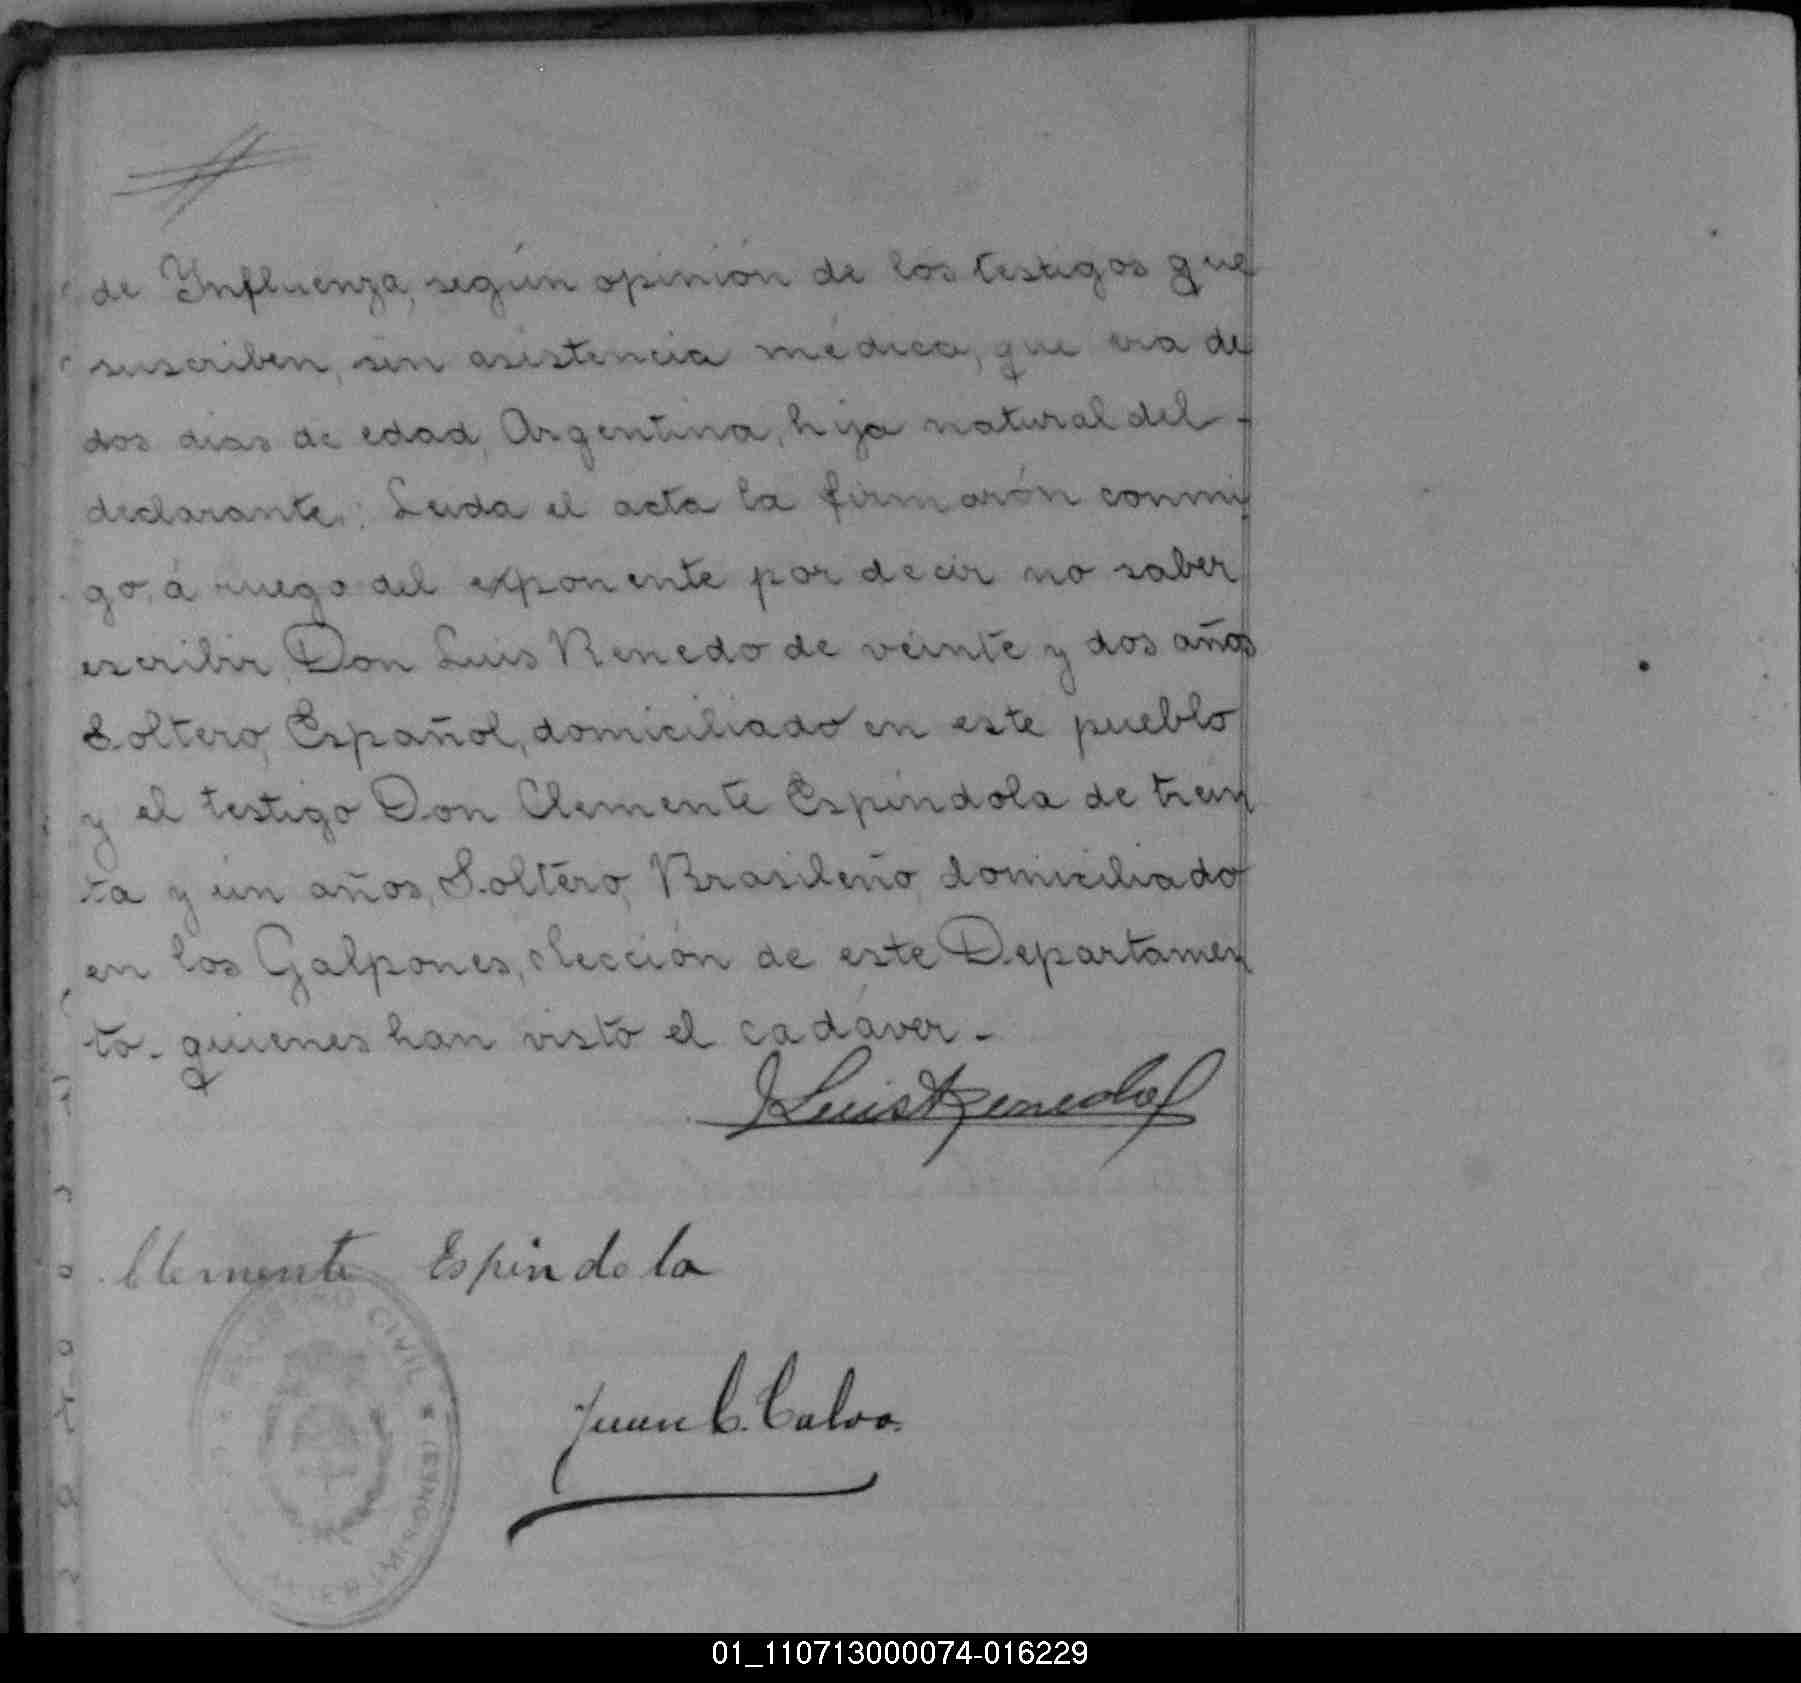 de Ynfluenza, según opinión de los testigos que
suscriben, sin asistencia médica, que era de
dos dias de edad, Argentina, hija natural del -
declarante. Leida el acta la firmarón conmi
go, á ruego del exponente por decir no saber
escribir, Don Luis Renedo de veinte y dos años
Soltero, Español, domiciliado en este pueblo
y el testigo Don Clemente Espíndola de trein
ta y un años, Soltero, Brasileño, domiciliado
en los Galpones, Sección de este Departamen
to - quienes han visto el cadáver -
Luis Renedo
Clemente Espindola
REGISTRO CIVIL
(MISIONES)
Juan C. Calvo.
01_110713000074-016229